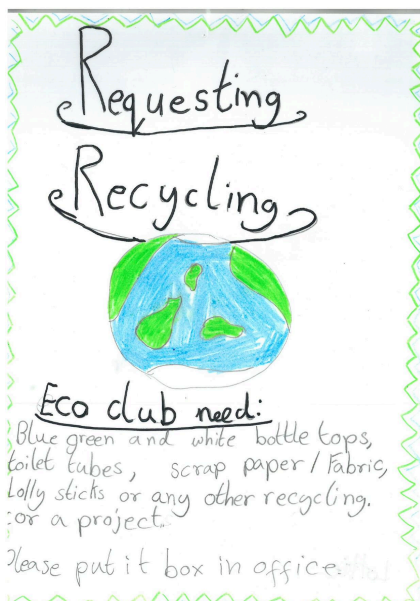 Requesting
Recycling
Eco club need:
Blue green and white bottle tops,
toilet tubes, scrap paper / Fabric,
Lolly sticks or any other recycling.
for a project.
Please put it box in office.